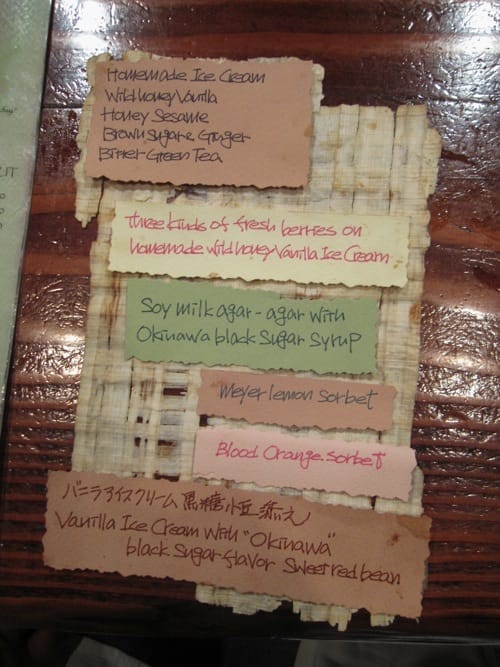 Homemade Ice Cream
Wild honey Vanilla
Honey Sesame
Brown Sugar & Ginger
Bitter Green Tea
three kinds of fresh berries on
homemade wild honey Vanilla Ice Cream
Soy milk agar-agar with
Okinawa black Sugar Syrup
Meyer lemon Sorbet
Blood Orange Sorbet
バニラアイスクリーム黒糖小豆添え
Vanilla Ice Cream with "Okinawa"
black Sugar flavor Sweet red bean